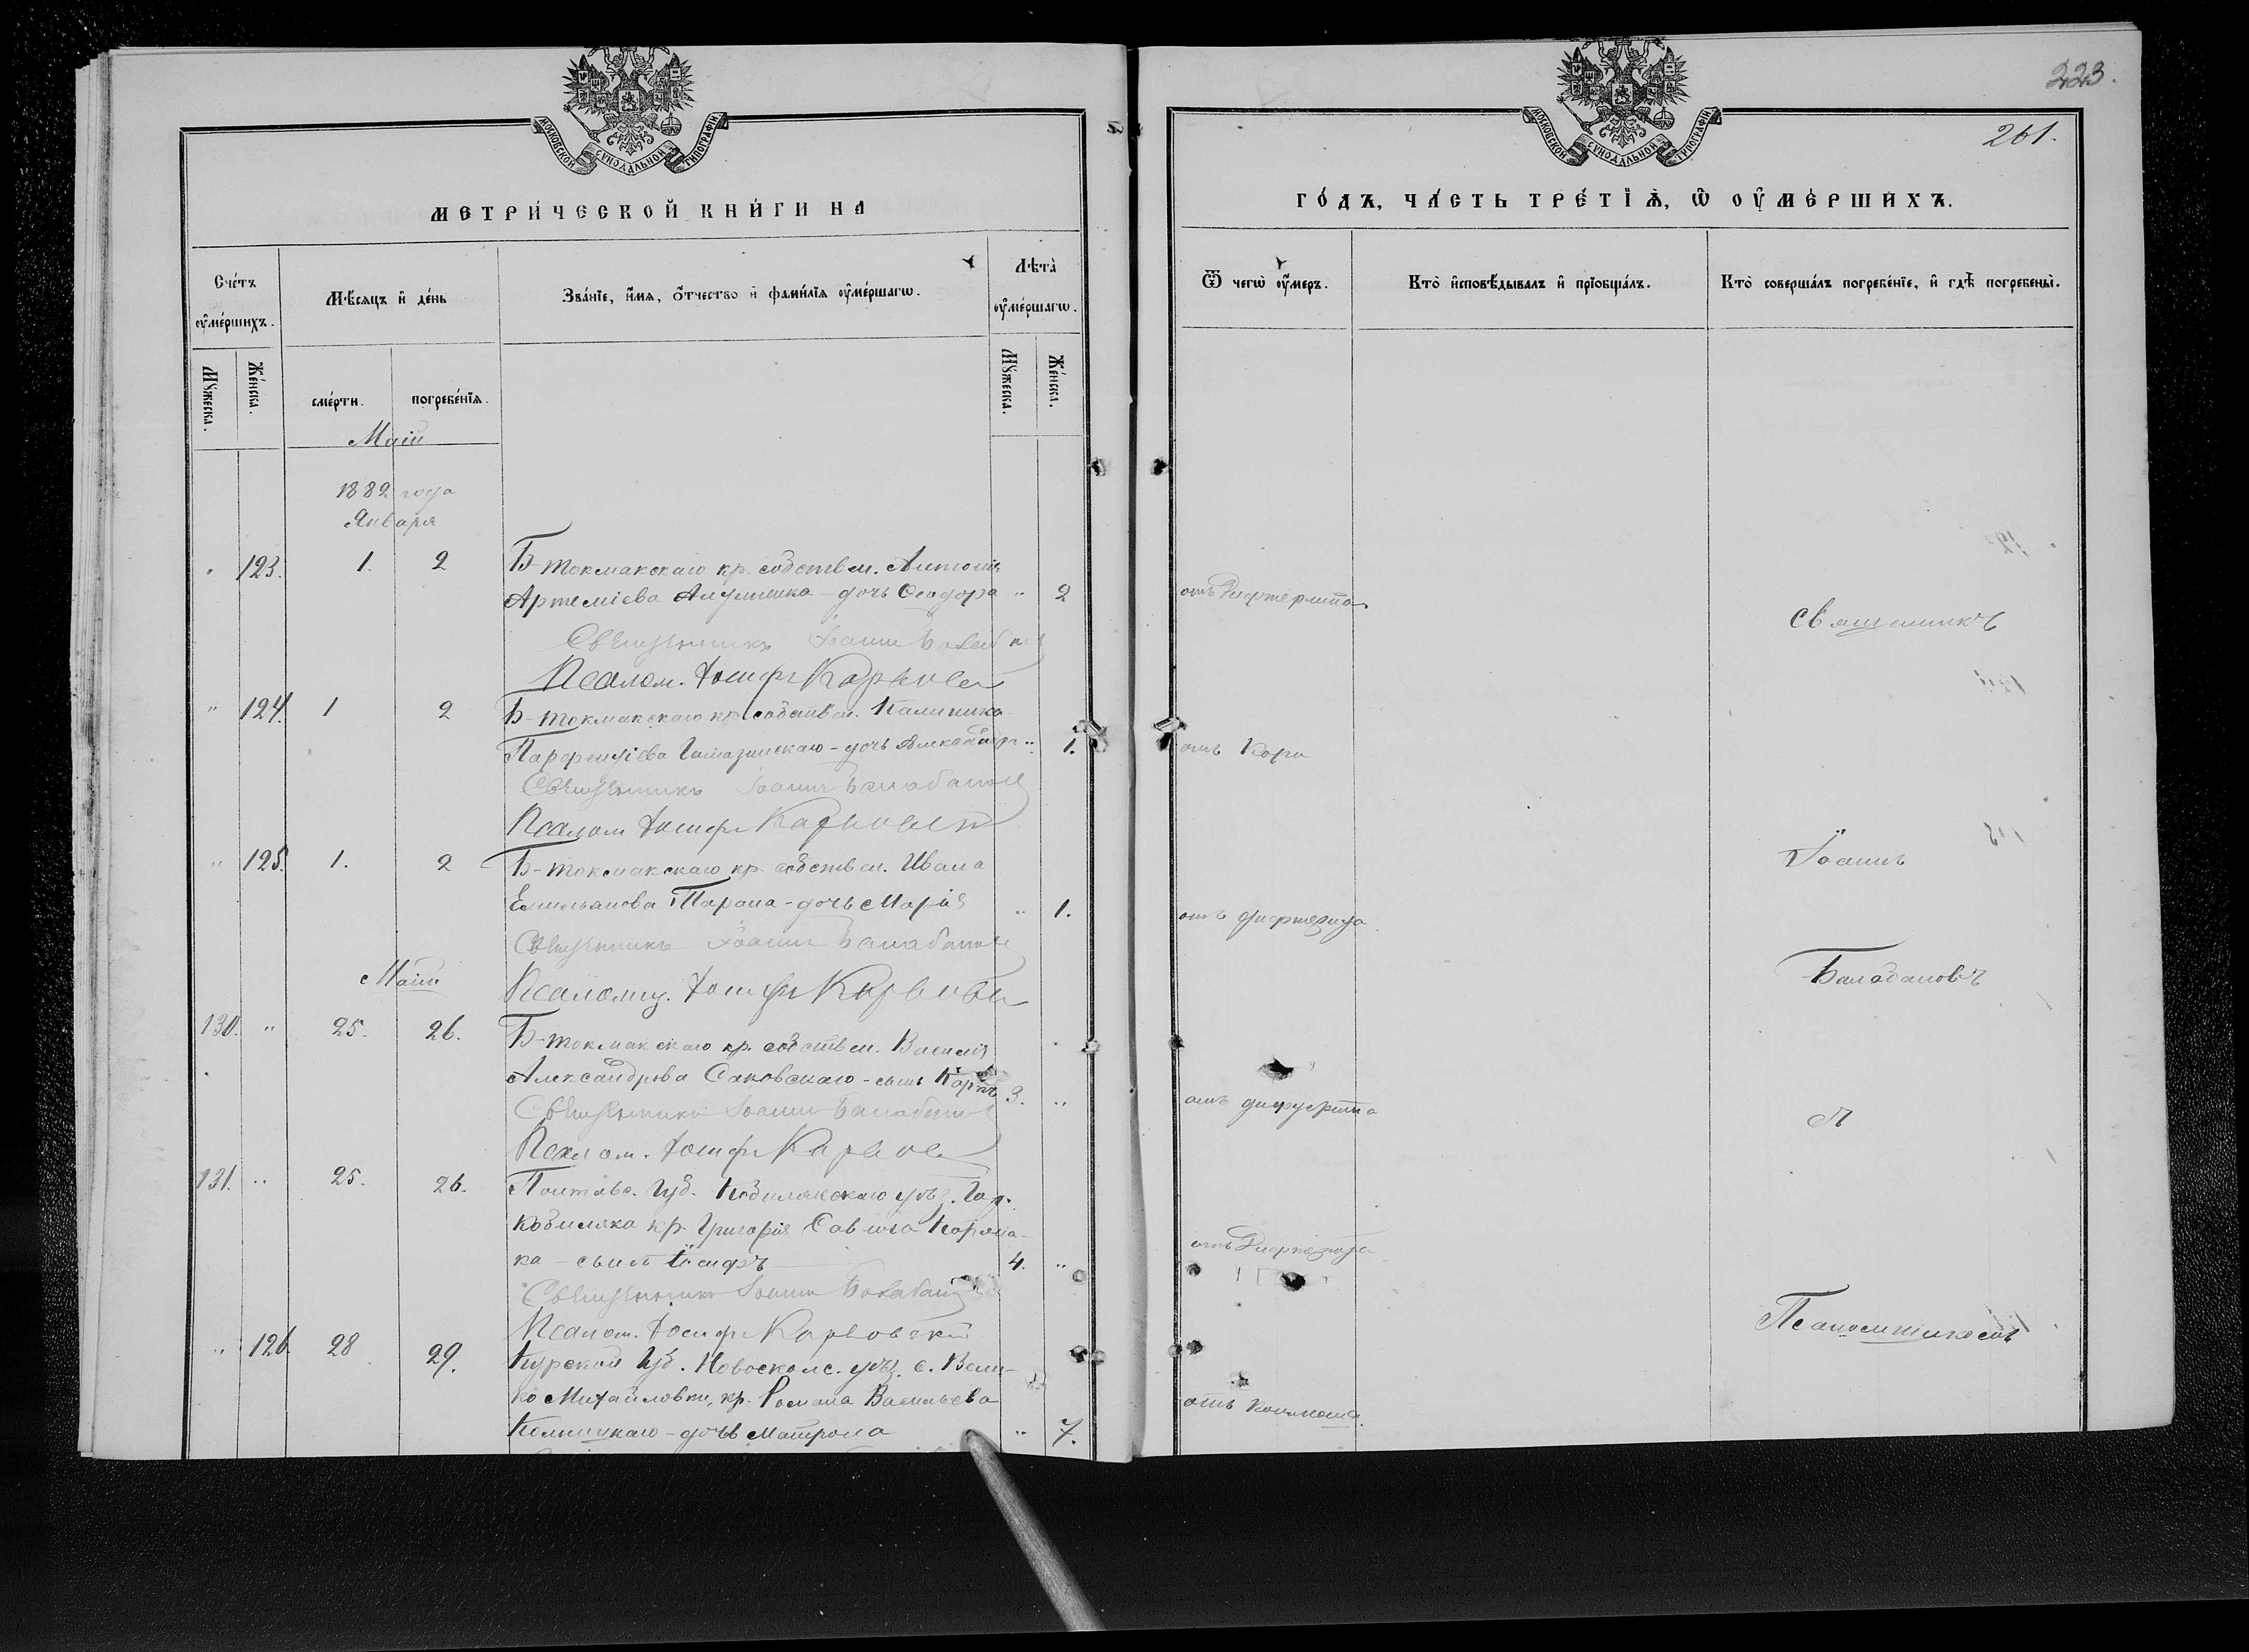 МОСКОВСКОЙ СѴНОДАЛЬНОЙ ТИПОГРАФІИ
МЕТРИ́ЧЕСКОЙ КНИ́ГИ НА
Сче́тъ ᲂу҆ме́ршихъ.
Мѣ́сяцъ и҆ де́нь
Зва́нїе, и҆́мѧ, ѻ҆́тчество и҆ фами́лїѧ ᲂу҆ме́ршагѡ.
Лѣта̀ ᲂу҆ме́ршагѡ.
Мꙋ́жеска.
Же́нска.
сме́рти.
погребе́нїѧ.
Мꙋ́жеска.
Же́нска.
Маій
1882 года
Января
" 123. 1. 2 Б-токмакскаго кр. собствен. Антонія
Артеміева - дочь Ѳеодора " 2
Священникъ Іоаннъ Балабановъ
Псалом. Іосифъ
" 124. 1 2 Б-токмакскаго кр. собствен. Калиника
- дочь " 1.
Священникъ Іоаннъ Балабановъ
Псалом Іосифъ
" 125. 1. 2 Б-токмакскаго кр. собствен. Ивана
Емельянова Тарана - дочь Марія " 1.
Священникъ Іоаннъ Балабановъ
Маій
Псаломщ. Іосифъ
130. " 25. 26. Б-токмакскаго кр. собствен. Василія
Александрова Саковскаго - сынъ Карпъ 3. "
Священникъ Іоаннъ Балабановъ
Псалом. Іосифъ
131. " 25. 26. Полтавс. Губ. Кобилякскаго уѣз. Гор.
Кобиляка кр. Григорія Савина
ка - сынъ Іосифъ 4. "
Священникъ Іоаннъ Балабановъ
Псалом. Іосифъ
" 126. 28 29. Курской Губ. Новоосколс. уѣз. с. Вели-
ко Михайловки, кр. Романа Васильева
- дочь Матрона " 7.
223.
261.
МОСКОВСКОЙ СѴНОДАЛЬНОЙ ТИПОГРАФІИ
ГО́ДЪ, ЧА́СТЬ ТРЕ́ТЇѦ, Ѡ҆ ОУ҆МЕ́РШИХЪ.
Ѿ чегѡ̀ ᲂу҆́меръ.
Кто̀ и҆сповѣ́дывалъ и҆ прїобща́лъ.
Кто̀ соверша́лъ погребе́нїе, и҆ гдѣ̀ погребены̀.
отъ Дифтерита
Священникъ
отъ Кора
Іоаннъ
отъ дифтерита
Балабановъ
отъ дифтерита
съ
отъ Дифтерита
Псаломщикомъ
отъ